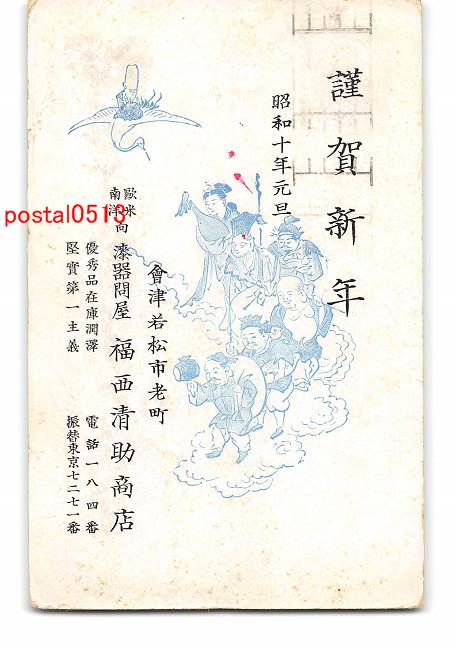 謹賀新年
昭和十年元旦
會津若松市老町
歐米
南洋
向
漆器問屋 福西清助商店
優秀品在庫潤澤 電話一八四番
堅實第一主義 振替東京七二七一番
postal0513